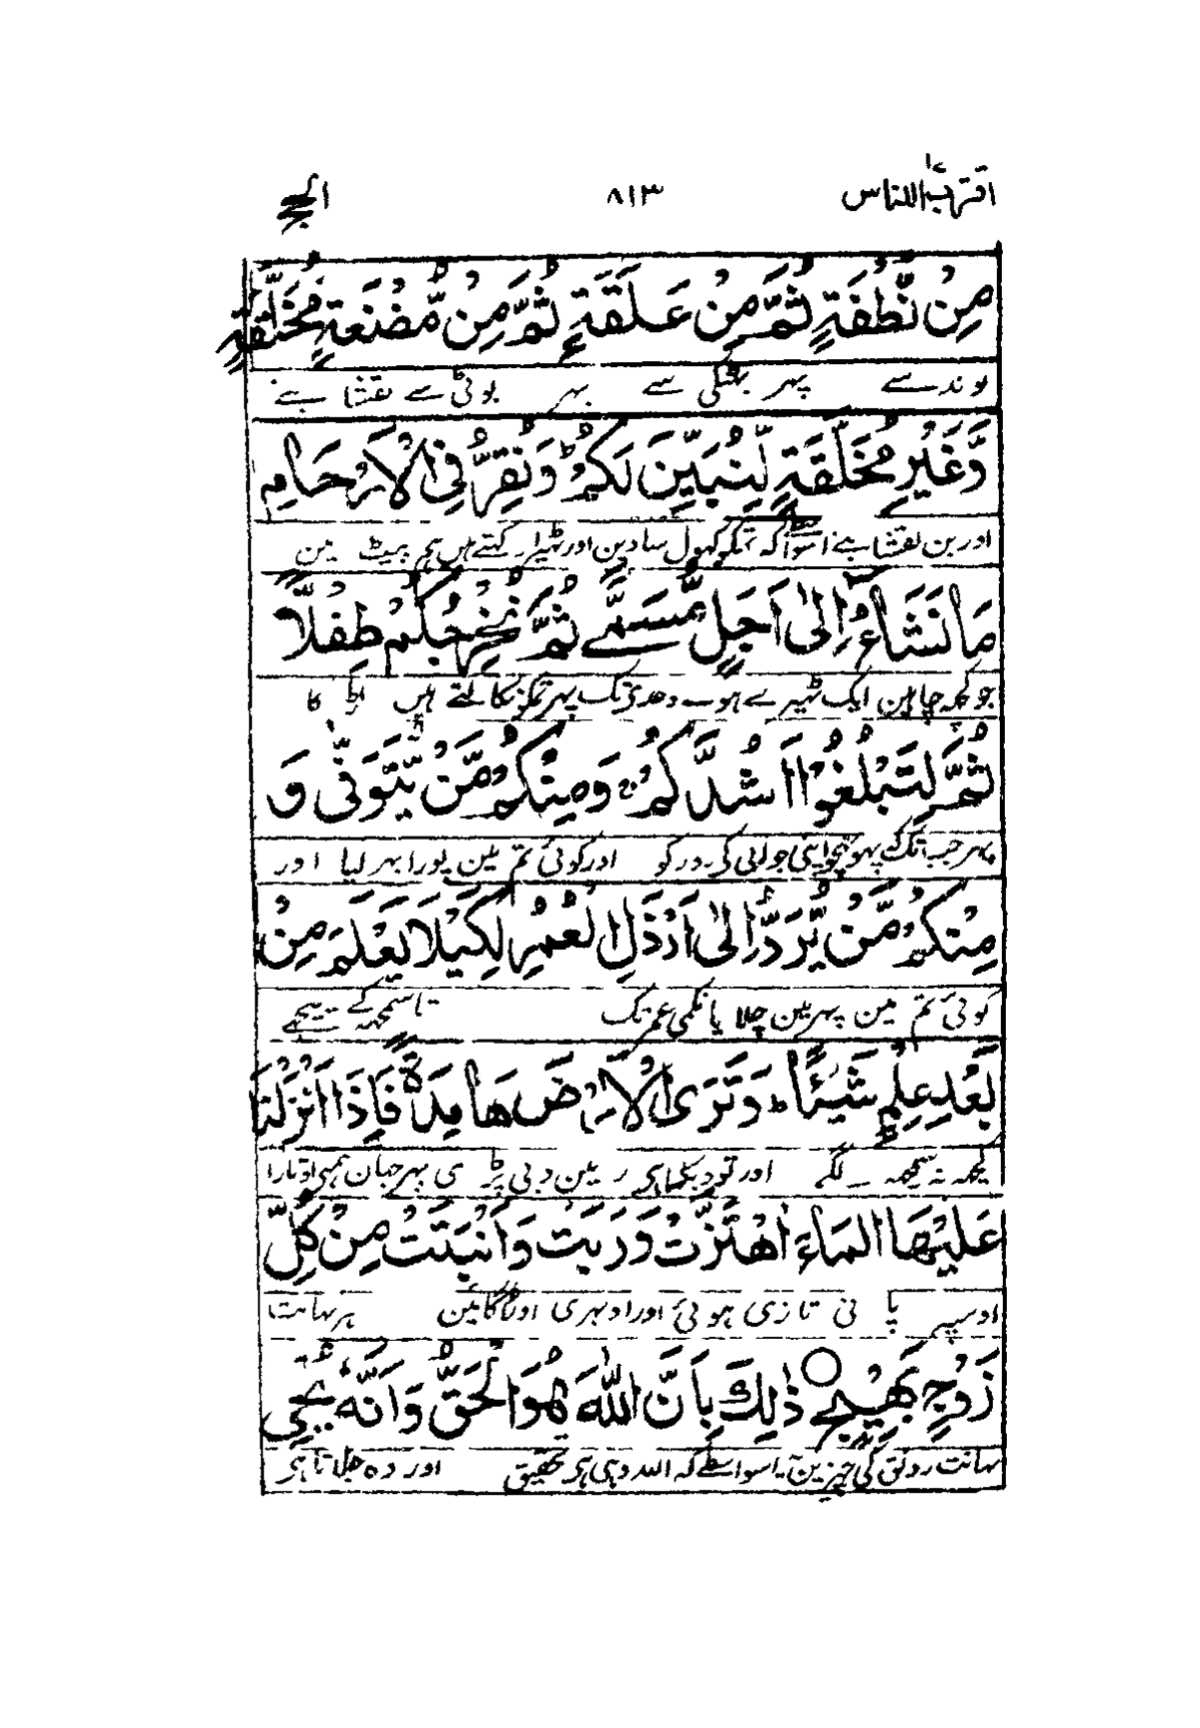 اقترب للناس ١٧ ٨١٣ الحج
مِنْ نُّطْفَةٍ ثُمَّ مِنْ عَلَقَةٍ ثُمَّ مِنْ مُّضْغَةٍ مُّخَلَّقَةٍ
بوند سے پہر پھٹکی سے پہر بوٹی سے نقشا بنے
وَّغَيْرِ مُخَلَّقَةٍ لِّنُبَيِّنَ لَكُمْ ؕ وَنُقِرُّ فِى الْاَرْحَامِ
اور بن نقشا بنے اسواسطے کہ تمکو کہول سنا دین اور ٹہیرا رکہتے ہین ہم پیٹ مین
مَا نَشَآءُ اِلٰٓى اَجَلٍ مُّسَمًّى ثُمَّ نُخْرِجُكُمْ طِفْلًا
جو کچہ چاہین ایک ٹہیرے ہوے وعدی تک پہر تمکو نکالتے ہین لڑکا
ثُمَّ لِتَبْلُغُوْٓا اَشُدَّكُمْ ۚ وَمِنْكُمْ مَّنْ يُّتَوَفّٰى وَ
پہر جب تک کہ پہونچو اپنی جوانی کی زور کو اور کوئی تم مین پورا بہر لیا اور
مِنْكُمْ مَّنْ يُّرَدُّ اِلٰٓى اَرْذَلِ الْعُمُرِ لِكَيْلَا يَعْلَمَ مِنْۢ
کوئی تم مین پہر مین چلایا نکمی عمر تک تا سمجہہ کے پیچہے
بَعْدِ عِلْمٍ شَيْـًٔا ؕ وَتَرَى الْاَرْضَ هَامِدَةً فَاِذَآ اَنْزَلْنَا
کچہہ نہ سمجہہ لگے اور تو دیکہتا ہی زمین دبی پڑی پہر جہان ہمنی اوتارا
عَلَيْهَا الْمَآءَ اهْتَزَّتْ وَرَبَتْ وَاَنْۢبَتَتْ مِنْ كُلِّ
اوسپر پانی تازی ہوئی اور اوبہری اور اوگائین ہر بہانت
زَوْجٍۭ بَهِيْجٍ ○ ذٰلِكَ بِاَنَّ اللّٰهَ هُوَ الْحَقُّ وَاَنَّهٗ يُحْىِ
بہانت رونق کی چیزین یہ اسواسطے کہ اللہ وہی ہی تحقیق اور وہ جلاتا ہی